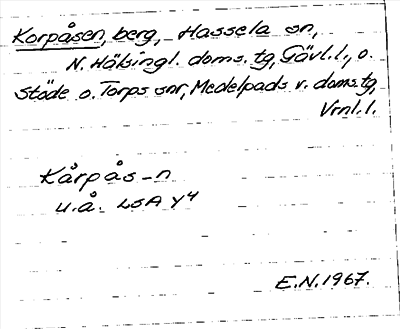 Korpåsen, berg, Hassela sn,
N. Hälsingl. doms.tg, Gävl.l., o.
Stöde o. Torps snr, Medelpads v. doms.tg,
Vrnl.l.
Kårpås-n
u.å. LSA Y4
E.N. 1967.